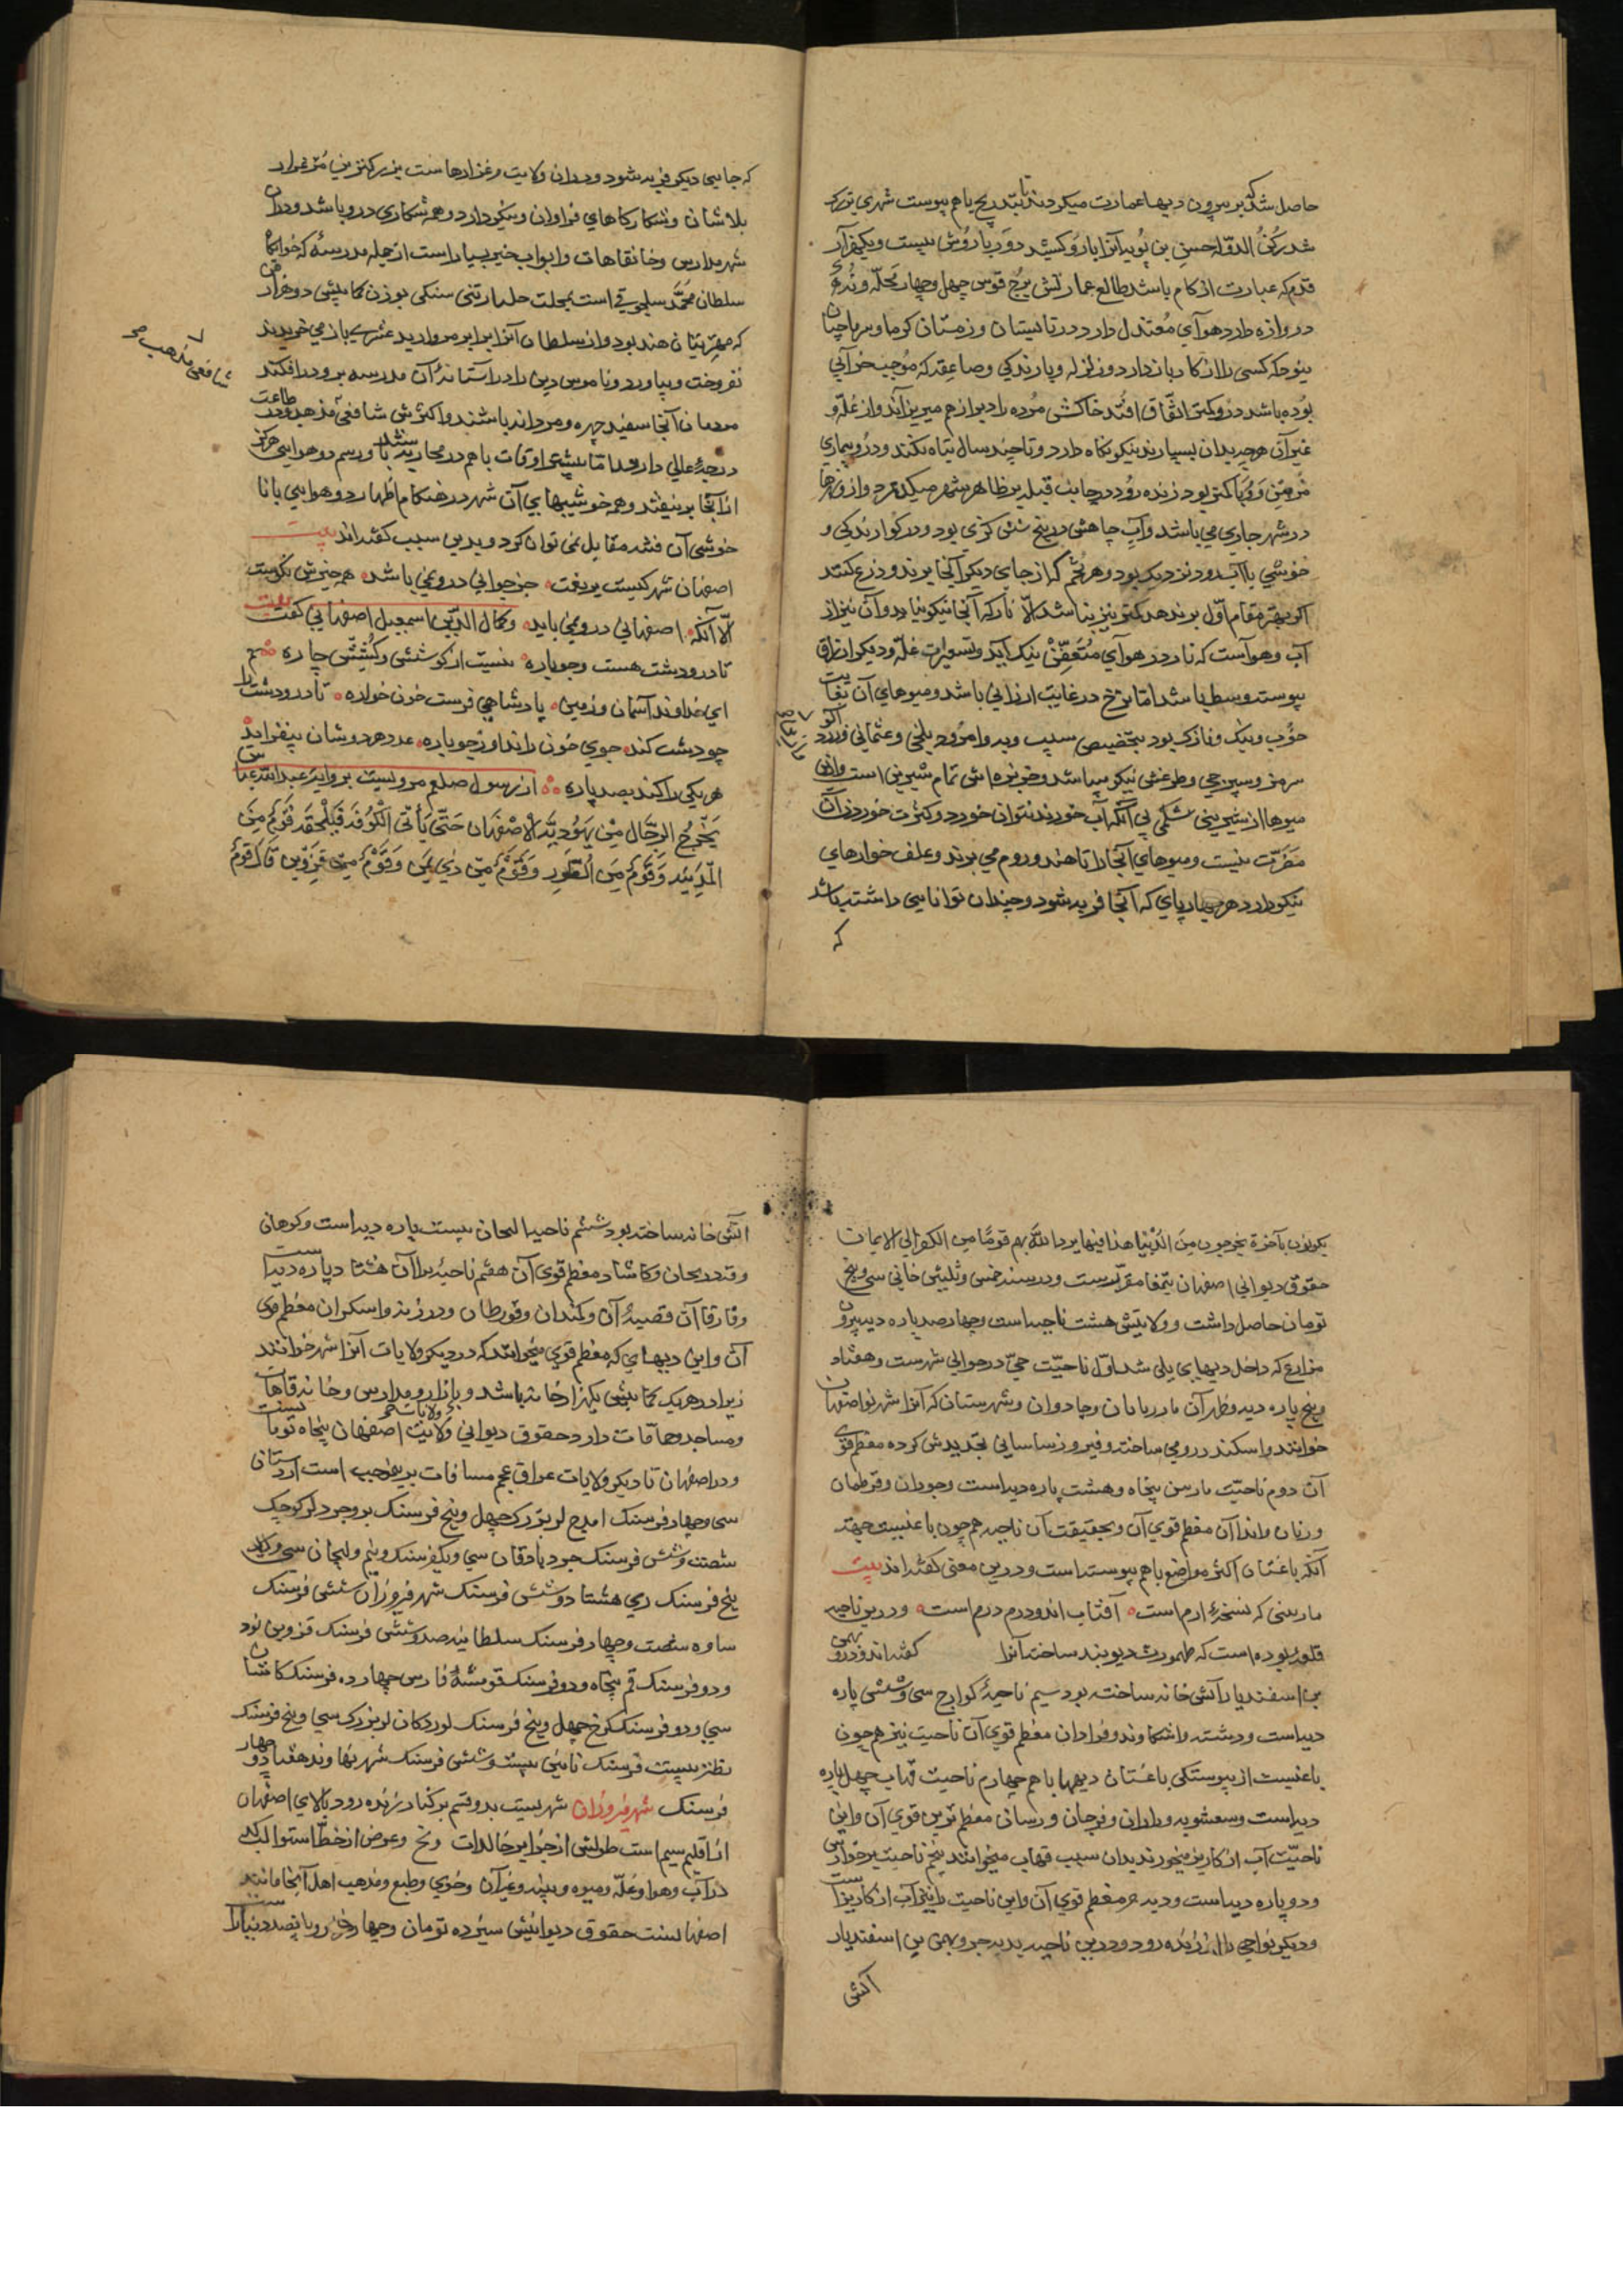 حاصل شد که بر بیرون دیها عمارت میکردند تا بتدریج باهم پیوست شهری بزرک
شد رکن الدوله حسن بن بویه آنرا بارو کشید دور باروش بیست ویکهزار
قدم که عبارت از کام باشد طالع عمارتش برج قوس چهل وچهار محلّه و
دروازه دارد هوآی مُعتدل دارد در تابستان وزمستان کرما وسرما چنان
بنودکه کسی را از کار باز دارد وزلزله وبارندکی وصاعقه که مُوجب خرآبی
بُوده باشد درو کمتر اتفاق افتد خاکش مُرده را دیر از هم میریزاند واز غلّه و
غیر آن هرچه بدان بسپارند نیکو نکاه دارد وتا چند سال تباه نکند ودرو بیماری
مُزمن ووَبا کمتر بود زنده رُود در جانب قبله بر ظاهر شهر میکذرد وازو نهرها
در شهر جاری می باشد وآب چاهش در پنج شش کزی بود ودر کوارندکی و
خوشی با آب رود نزدیک بود وهر تخم که از جای دیکر آنجا برند وزرع کنند
اکر بهتر از مقام اوّل برندهد کمتر نیز نباشد الّا نار که آنجا نیکو نیاید وآن نیز از
آب وهواست که نار در هوآی مُتَعَفّن نیک آید وتسعیرات غلّه ودیکر ارتزاق
پیوسته وسط باشد امّا نرخ در غایت ارزانی باشد ومیوهای آن بغایت
خُوب ونیک ونازک بود بتخصیص سیب وبه وامرود بلخی وعثمانی وزرد
میوها از شیرینی شکمی پی آنکه آب خورند نتوان خورد وکثرت خوردن آن
مَضرّت نیست ومیوهای آنجا را تا هند وروم می برند وعلف خوارهای
نیکو دارد هر چهار پای که آنجا فربه شود دو چندان توانایی داشته باشد
که
که جایی دیکر فربه شود ودر ان ولایت مرغزارها ست بزرکترین مُرغزار
بلاشان وشکارکاهای فراوان ونیکو دارد وهمه شکاری درو باشد ودر ان
شهر مدارس وخانقاهات وابواب خیر بسیار است از جمله مدرسهٔ که خوابکاه
سلطان مُحَمّد سلجوقی است بمحلت جلبارتنی سنکی بوزن کمابیش ده هزار من
که مهتر بتان هند بود واز سلطان آنرا برابر مروارید عشری باز می خریدند
نفروخت وبیاورد وناموس دین را در آستانهٔ آن مدرسه برو درافکند
شافعی مذهب
مردمان آنجا سفید چهره ومردانه باشند واکثرش شافعی مذهب ودر طاعت
درجهٔ عالی دارند امّا بیشتر اوقات باهم در محاربه باشند ورسم دو هوایی هرکز
از آنجا برنیفتد وهمه خوشیهای آن شهر در هنکام اظهار دو هوایی با نا
خوشی آن فتنه مقابل نمی توان کرد وبدین سبب کفته اند بیت
اصفهان شهر کیست پر نعمت جز جوانی درو نمی باشد همه چیزش نکوست
الّا آنکه اصفهانی درو نمی باید وکمال الدّین اسمعیل اصفهانی کفت بیت
تا در ودشت هست وجوباره نیست از کوشش وکُشِش چاره
ای خداوند آسمان وزمین پادشاهی فرست خون خواره تا در ودشت را
چو دشت کند جوی خون راند او ز جوباره عدد هر دوشان بیفزاید
هر یکی را کند بصد پاره از رسول صلعم مرویست بروایة عبد الله عباس
یَخْرُج الدجّال مِنْ یَهُودِیّة الاصْفَهان حَتّی یَأتی الکُوْفَة فَیَلْحَقه قَوْمٌ مِنَ
المدِینَه وَقَوْمٌ مِنَ الطُور وَقَوْمٌ مِنْ ذی یَمَن وَقَوْمٌ مِنْ قَزْوِین قال قومٌ
یکونون بآخرة یخرجون من الدُنیا هذا فیها یرد اللّه بهم قومًا من الکفر الی الایمان
حقوق دیوانی اصفهان بتمغا مقرّرست ودر سنهٔ خمس وثلثین خانی سی وپنج
تومان حاصل داشت وولایتش هشت ناحیه است وچهارصد پاره دیه بیرون
مزارع که داخل دیهای بلی شد اوّل ناحیّت جیّ در حوالی شهرست وهفتاد
وپنج پاره دیه وطهران ماربانان وجادوان وشهرستان که آنرا شهر نو اصفهان
خوانند واسکندر رومی ساخته وفیروز ساسانی تجدیدش کرده معظم قری
آن دوم ناحیّت ماربین پنجاه وهشت پاره دیه است وجوزدان وقرطمان
ورنان واندان معظم قوی آن وبحقیقت آن ناحیه هم چون باغیست جهة
آنکه باغستان اکثر مواضع باهم پیوسته است ودرین معنی کفته اند بیت
ماربینی که نسخهٔ ارم است آفتاب اندودرم درم است ودرین ناحیه
قلعهٔ بوده است که طهمورث دیوبند ساخته آنرا کفته اند ودرو بهمن
بن اسفندیار آتش خانه ساخته بود سیم ناحیهٔ کرارج سی وشش پاره
دیه است ودشته واشکاوند وفزادان معظم قوی آن ناحیت نیز هم چون
باغیست از پیوستکی باغستان دیهها باهم چهارم ناحیت قهاب چهل پاره
دیه است وسعشویه وراران وفرجان ورسانی معظم ترین قوی آن واین
ناحیّت آب از کاریز میخورند بدان سبب قهاب میخوانند پنجم ناحیت برخوارسی
ودو پاره دیه است ودیه جز معظم قوی آن واین ناحیت را نیز آب از کاریزاست
ودیکر نواحی را از زنده رود ودرین ناحیه بدیه جز وبهمن بن اسفندیار
آتش
آتش خانه ساخته بود ششم ناحیه النجان بیست پاره دیه است وکوهان
وقهدریجان وکاشاد معظم قوی آن هفتم ناحیهٔ براآن هشتاد پاره دیه است
وفارفاآن قصبهٔ آن وکمندان وقورطان ودرزنه واسکران معظم قری
آن واین دیهای که معظم قوی میخوانند که در دیکر ولایات آنرا شهر خوانند
زیرا در هریک کمابیش یکهزار خانه باشد وبازار ومدارس وخانه قاهات
ومساجد وحمّامات دارد حقوق دیوانی ولایت اصفهان پنجاه تومانست
ودر اصفهان تا دیکر ولایات عراق عجم مسافات بریموجب است اردستان
سی وچهار فرسنک ایذج لر بزرک چهل وپنج فرسنک بروجرد لر کوچک
شصت وشش فرسنک جرد بادقان سی ویکفرسنک ونیم ولنجان سی ویک
پنج فرسنک ری هشتاد وشش فرسنک شهر فیروزان شش فرسنک
ساوه شصت وچهار فرسنک سلطانیه صد وشش فرسنک قزوین نود
ودو فرسنک قم پنجاه ودو فرسنک قومشهٔ فارس چهارده فرسنک کاشان
سی ودو فرسنک کرج چهل وپنج فرسنک لوردکان لر بزرک سی وپنج فرسنک
نطنز بیست فرسنک نائین بیست وشش فرسنک شهر نهاوند هفتاد وچهار
فرسنک شهر فیروزان شهریست بدو قسم بر کنار زنده رود بالای اصفهان
از اقلیم سیم است طولش از جزایر خالدات ونج وعرض از خطّ استوا لب کد
در آب وهوا وغلّه ومیوه وپنبه وغیر آن وخوی وطبع ومذهب اهل آنجا مانند
اصفهانست حقوق دیوانیش سیزده تومان وچهار هزار وپانصد دینارست